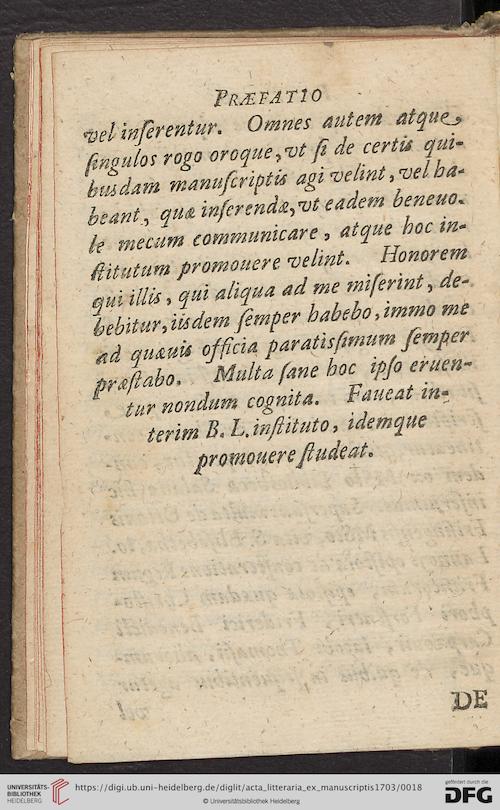 PRÆFATIO
vel inſerentur. Omnes autem atque
ſingulos rogo oroque, vt ſi de certis qui-
busdam manuſcriptis agi velint, vel ha-
beant, quæ inſerendæ, vt eadem beneuo-
le mecum communicare, atque hoc in-
ſtitutum promouere velint. Honorem
qui illis, qui aliqua ad me miſerint, de-
bebitur, iisdem ſemper habebo, immo me
ad quæuis officia paratisſimum ſemper
præſtabo. Multa ſane hoc ipſo eruen-
tur nondum cognita. Faueat in-
terim B. L. inſtituto, idemque
promouere ſtudeat.
DE
UNIVERSITÄTS-
BIBLIOTHEK
HEIDELBERG
https://digi.ub.uni-heidelberg.de/diglit/acta_litteraria_ex_manuscriptis1703/0018
© Universitätsbibliothek Heidelberg
gefördert durch die
DFG